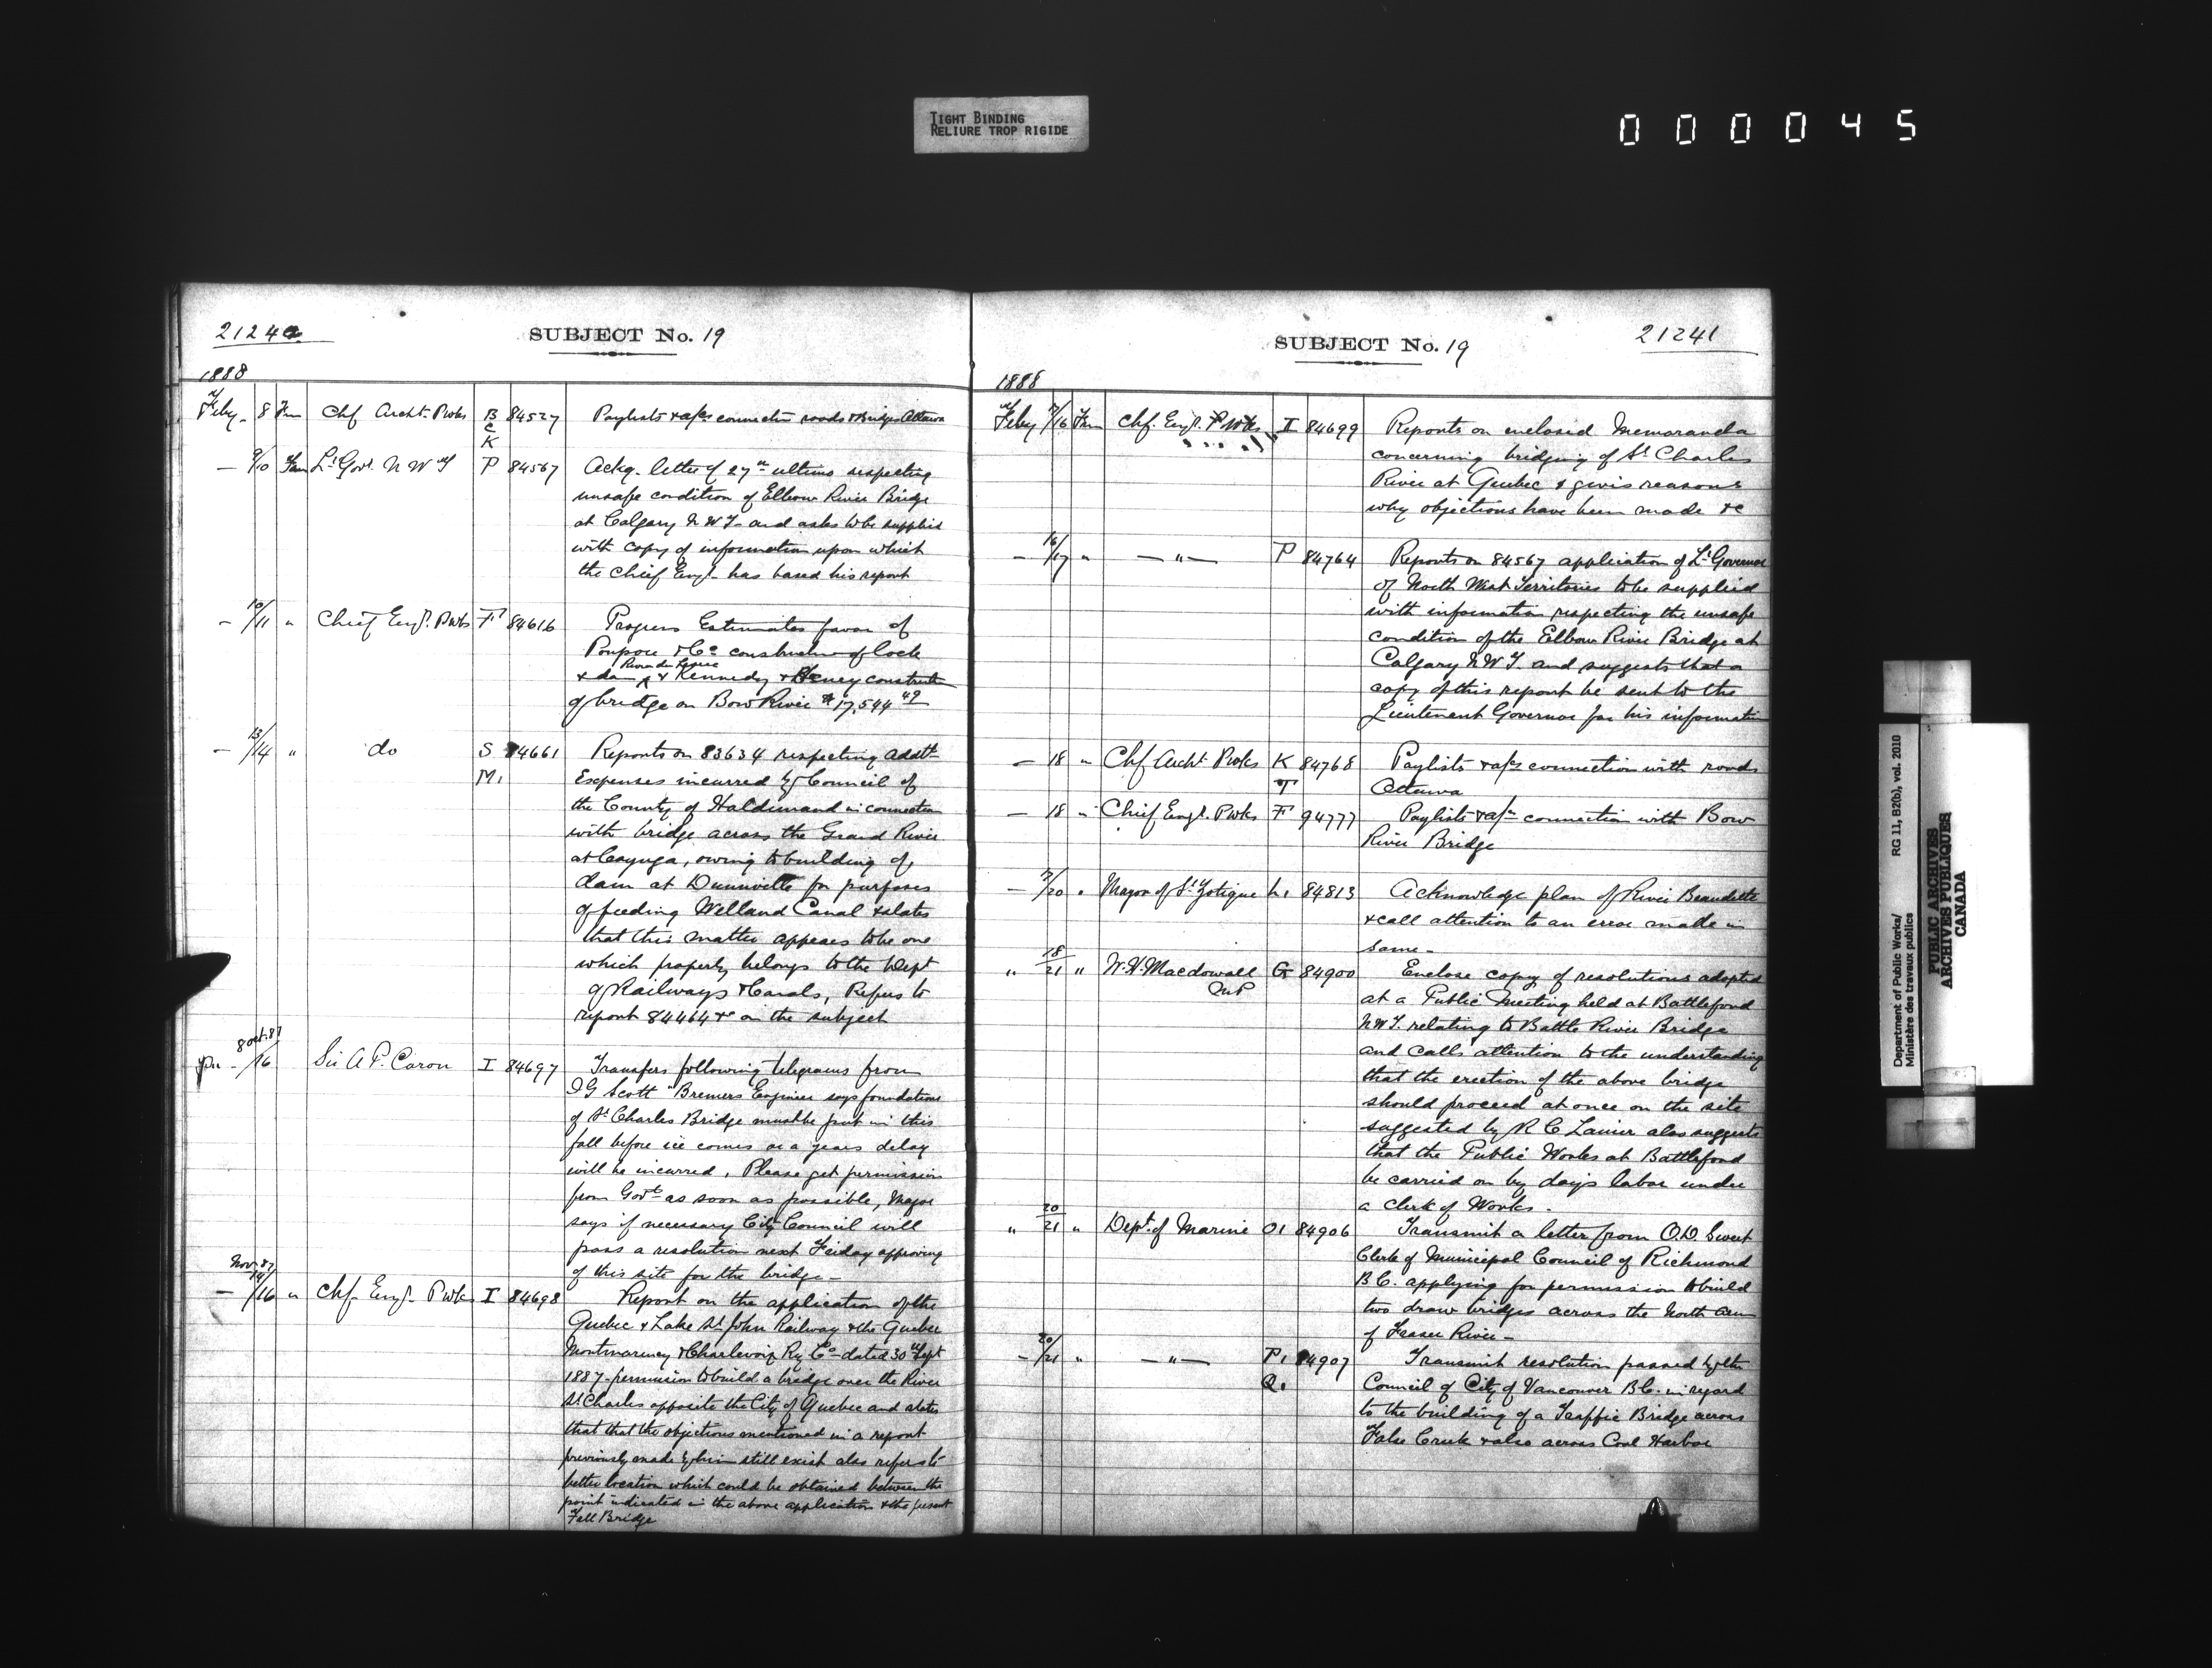 TIGHT BINDING
RELIURE TROP RIGIDE
000045
21240
SUBJECT No. 19
1888
Feby 8 Fm Chf Archt Pwks B C K 84527 Paylists & a/cs connection roads & Bridges Ottawa
— 9/10 Fm Lt Govr. N W T P 84567 Ackg. letter of 27th ultimo respecting
unsafe condition of Elbow River Bridge
at Calgary N.W.T. and asks to be supplied
with copy of information upon which
the Chief Engr. has based his report
— 10/11 " Chief Engr. Pwks F 84616 Progress Estimates favor of
Poupore & Co construction of lock
& dam Riviere du Lievre & Kennedy & Heney construction
of bridge on Bow River $17,544 49
— 13/14 " do S M1 84661 Reports on 83634 respecting Addtl
Expenses incurred by Council of
the County of Haldimand in connection
with bridge across the Grand River
at Cayuga, owing to building of
dam at Dunnville for purposes
of feeding Welland Canal & states
that this matter appears to be one
which properly belongs to the Dept
of Railways & Canals, Refers to
report 84464 &c on the subject
8 Oct. 87
/16 Sir A P. Caron I 84697 Transfers following telegrams from
J G Scott "Bremers Engineer says foundations
of St Charles Bridge must be put in this
fall before ice comes or a years delay
will be incurred, Please get permission
from Govt as soon as possible, Mayor
says if necessary City Council will
pass a resolution next Friday approving
of this site for the bridge —
Nov. 87
— 14/16 " Chf Engr. Pwks I 84698 Report on the application of the
Quebec & Lake St John Railway & the Quebec
Montmorency & Charlevoix Ry Co dated 30th Sept
1887 permission to build a bridge over the River
St Charles opposite the City of Quebec and states
that that the objections mentioned in a report
previously made by him still exist also refers to
better location which could be obtained between the
point indicated in the above application & the present
Fall Bridge
SUBJECT No. 19
21241
1888
Feby /16 Fm Chf. Engr. Pwks I 84699 Reports on enclosed Memoranda
concerning bridging of St Charles
River at Quebec & gives reasons
why objections have been made &c
— 16/17 " — " — P 84764 Reports on 84567 application of Lt Governor
of North West Territories to be supplied
with information respecting the unsafe
condition of the Elbow River Bridge at
Calgary N.W.T. and suggests that a
copy of this report be sent to the
Lieutenant Governor for his information
— 18 " Chf Archt Pwks K T 84768 Paylists & a/cs connection with roads
Ottawa
— 18 " Chief Engr. Pwks F 94777 Paylists & a/cs connection with Bow
River Bridge
— /20 " Mayor of St Zotique L1 84813 Acknowledge plan of River Beaudette
& call attention to an error made in
same —
" 18/21 " W. H. Macdowall G 84900 Enclose copy of resolutions adopted
MP at a Public Meeting held at Battleford
N.W.T. relating to Battle River Bridge
and calls attention to the understanding
that the erection of the above bridge
should proceed at once on the site
suggested by R C Laurier also suggests
that the Public Works at Battleford
be carried on by days labor under
a Clerk of Works.
" 20/21 " Dept. of Marine O1 84906 Transmit a letter from O. D. Sweet
Clerk of Municipal Council of Richmond
B C. applying for permission to build
two draw bridges across the North Arm
of Fraser River —
— 20/21 " — " — P1 Q1 84907 Transmit resolution passed by the
Council of City of Vancouver B C. in regard
to the building of a Traffic Bridge across
False Creek & also across Coal Harbor
Department of Public Works/ RG 11, B2(b), vol. 2010
Ministère des travaux publics
PUBLIC ARCHIVES
ARCHIVES PUBLIQUES
CANADA